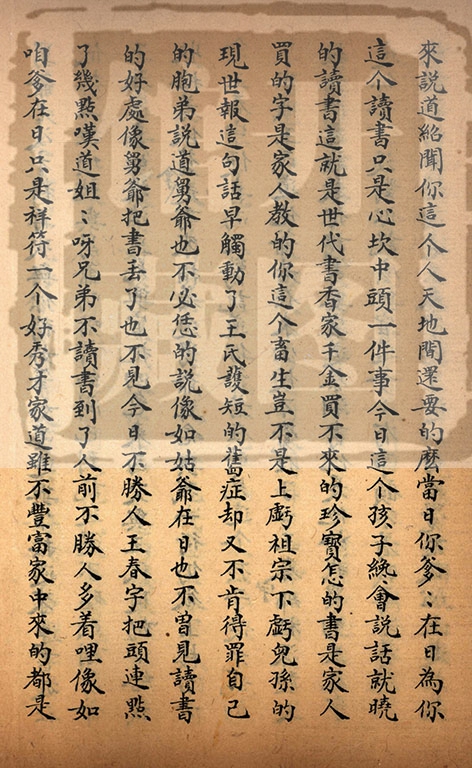 來説道紹聞你這个人天地間還要的麽當日你爹〻在日為你
這个讀書只是心坎中頭一件事今日這个孩子纔會説話就曉
的讀書這就是世代書香家千金買不來的珍寶怎的書是家人
買的字是家人教的你這个畜生豈不是上虧祖宗下虧兒孫的
現世報這句話早觸動了王氏護短的舊症却又不肯得罪自己
的胞弟說道舅爺也不必恁的説像如姑爺在日也不曾見讀書
的好處像舅爺把書丢了也不見今日不勝人王春宇把頭連點
了幾點嘆道姐〻呀兄弟不讀書到了人前不勝人多着哩像如
咱爹在日只是祥符一个好秀才家道雖不豐富家中來的都是